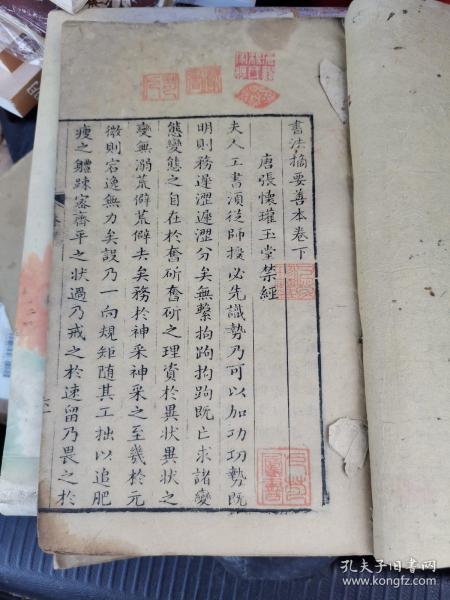 書法摘要善本卷下
唐張懷瓘玉堂禁經
夫人工書須從師授必先識勢乃可以加功功勢既
明則務遲澀遲澀分矣無繫拘跔拘跔既亡求諸變
態變態之自在於奮斫奮斫之理資於異狀異狀之
變無溺荒僻荒僻去矣務於神采神采之至幾於元
微則宕逸無力矣設乃一向規矩隨其工拙以追肥
瘦之體踈密齊平之狀過乃戒之於速留乃畏之於
孔夫子旧书网
www.kongfz.com